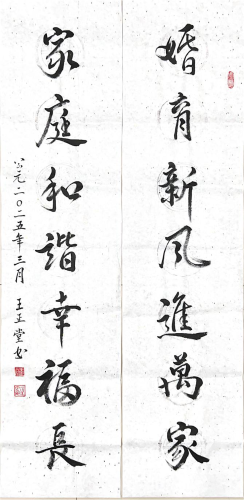 婚育新风進萬家
家庭和諧幸福長
公元二〇二五年三月 王正堂书